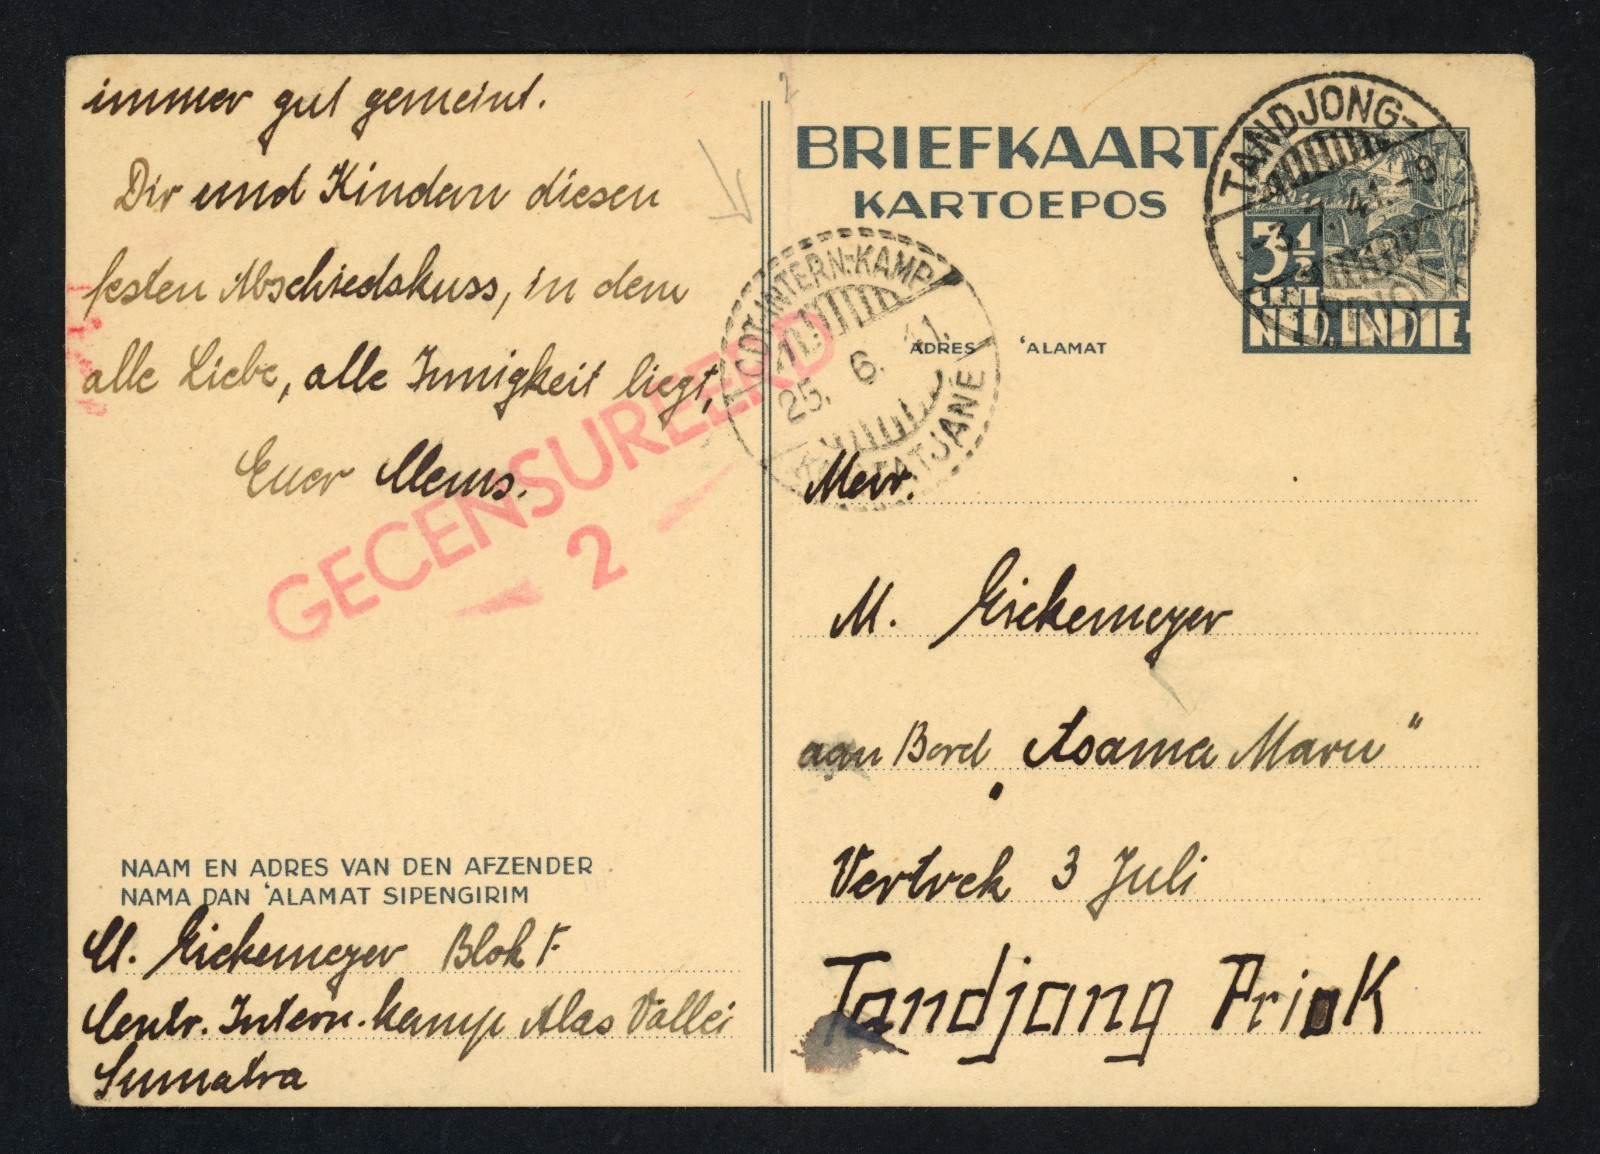 immer gut gemeint.
Dir und Kindern diesen
festen Abschiedskuss, in dem
alle Liebe, alle Innigkeit liegt,
Euer Clems.
GECENSUREERD
2
NAAM EN ADRES VAN DEN AFZENDER
NAMA DAN 'ALAMAT SIPENGIRIM
Cl. Eickemeyer Blok F.
Centr. Intern. kamp Alas Vallei
Sumatra
2
BRIEFKAART
KARTOEPOS
TANDJONG-
3.7.41.-9
PRIOK
3½
CENT
NED. INDIE
CDT. INTERN: KAMP
25. 6. 41.
KOETATJANE
ADRES 'ALAMAT
Mevr.
M. Eickemeyer
aan Bord „Asama Maru"
Vertrek 3 Juli
Tandjong Priok